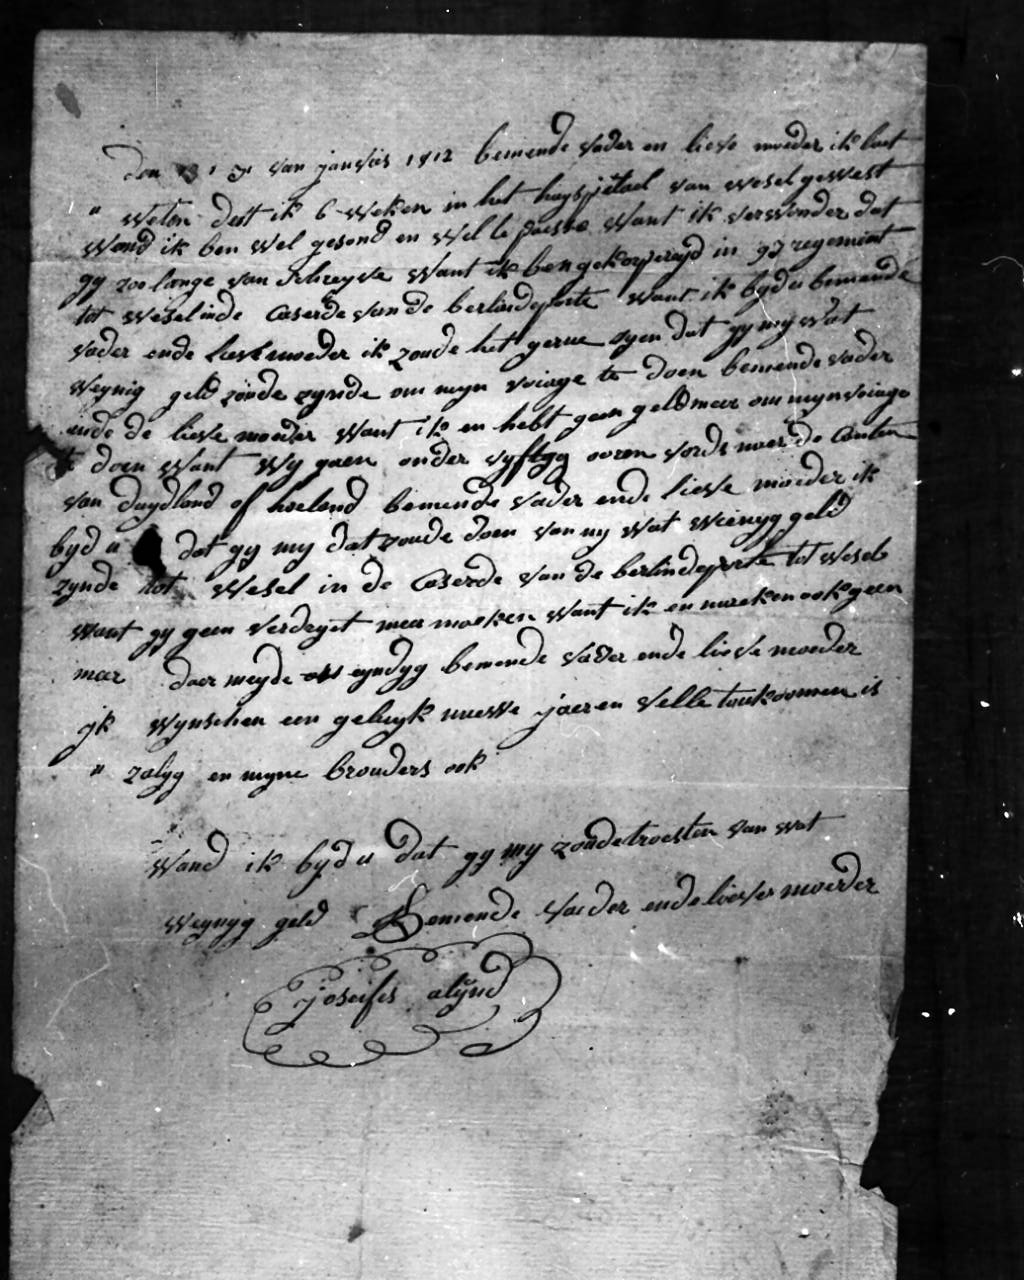 Den 13 van janviis 1812 bemende vader en lieve moeder ik laet
" weten dat ik 6 weken in het huyspjetael van wesel gewest
Wand ik ben wel gesond en wel te paesse want ik verwonder dat
gy zoo lange van schreyve want ik ben gekorpereyd in 93 regemint
tot weselinde Caserde van de berlindeporte want ik byd u bemende
vader ende lieve moeder ik zoude het gerne sgen dat gy my wat
weynig geld zoude zynde om myn voiage te doen bemende vader
ende de lieve moeder want ik en hebt geen geld meer om myn voiage
te doen want wy gaen onder vyftyg ooren vords naer de Canten
van duydland of hoeland bemende vader ende lieve moeder ik
byd u dat gy my dat zoude doen van my wat wienyg geld
zynde tot wesel in de Caserde van de berlindeporte tot wesel
want gy geen verdryet meer maeken want ik en maeken ook geen
meer daer meyde eyndyg bemende vader ende lieve moeder
jk wynschen een geluyk nuewe jaer en velle toukoomen is
" zalyg en myne brouders ook
Wand ik byd u dat gy my zoude troesten van wat
weynyg geld Bemende vader ende liever moerder
joseifes alynd